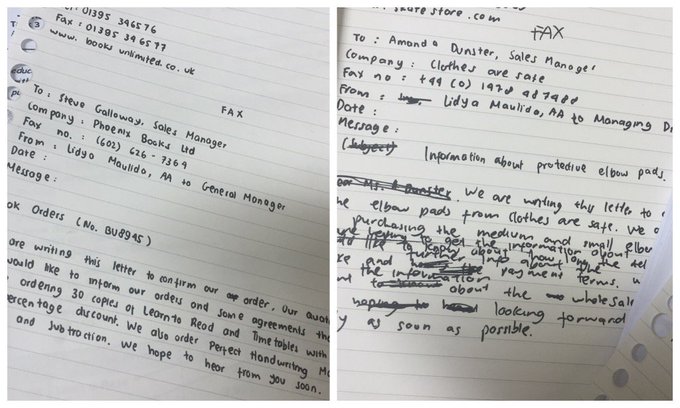 Tel: 01395 346576
Fax : 01395 346577
www. books unlimited.co.uk
FAX
To : Steve Galloway, Sales Manager
Company : Phoenix Books Ltd
Fax no. : (602) 626 - 7369
From : Lidya Maulida, AA to General Manager
Date :
Message :
Orders (No. BU8945)
are writing this letter to confirm our order. Our
would like to inform our orders and some agreements
ordering 30 copies of Learn to Read and Timetables with
percentage discount. We also order Perfect Handwriting
and Subtraction. We hope to hear from you soon.
educ
skate store .com
FAX
To : Amanda Dunster, Sales Manager
Company : Clothes are safe
Fax no : +44 (0) 1978 487488
From : Lidya Maulida, AA to Managing
Date :
Message :
(Subject) Information about protective elbow pads.
Ms. Dunster. We are writing this letter to
elbow pads from clothes are safe. We
purchasing the medium and small elbow
to get the information about
like to about the
further info about how long the
and the payment terms.
the information
to about the wholesale
looking forward
as soon as possible.